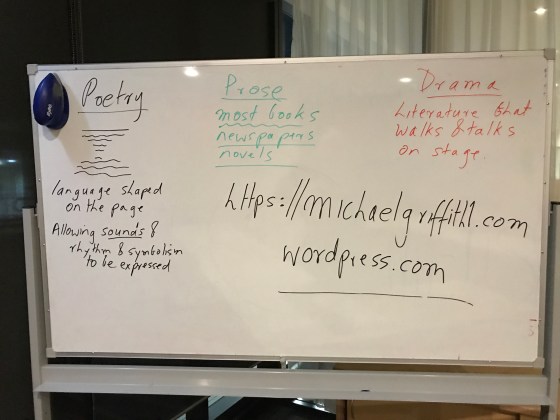 Poetry
language shaped
on the page
Allowing sounds &
rhythm & symbolism
to be expressed
Prose
most books
newspapers
novels
Drama
Literature that
walks & talks
on stage.
https://michaelgriffith1.com
wordpress.com